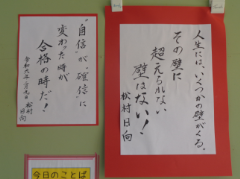 人生には、いくつかの壁がくる。
その壁に
超えられない
壁はない！
松村日向
“自信”が、確信に
変わった時が
合格の時だ！
松村
日向
今日のことば